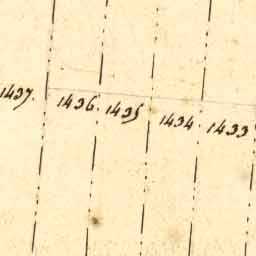 1437. 1436. 1435 1434 1433